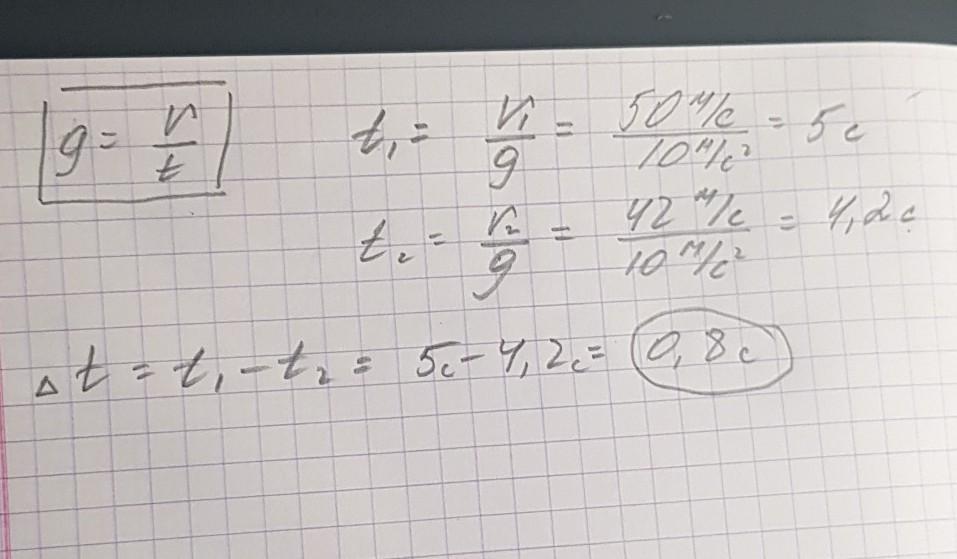 g = v/t
t₁ = v₁/g = 50 м/с / 10 м/с² = 5 с
t₂ = v₂/g = 42 м/с / 10 м/с² = 4,2 с
Δt = t₁ - t₂ = 5с - 4,2с = 0,8 с